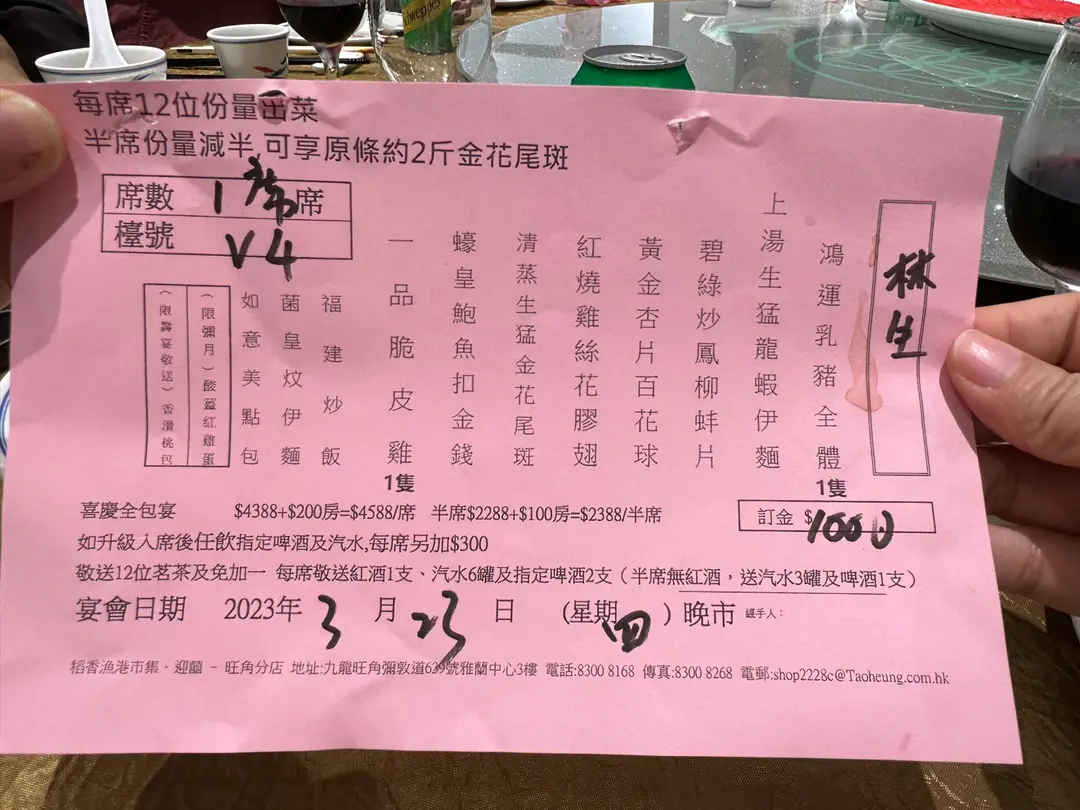 每席12位份量出菜
半席份量減半,可享原條約2斤金花尾斑
席數 1席 席
檯號 V4
林生
鴻運乳豬全體 1隻
上湯生猛龍蝦伊麵
碧綠炒鳳柳蚌片
黃金杏片百花球
紅燒雞絲花膠翅
清蒸生猛金花尾斑
蠔皇鮑魚扣金錢
一品脆皮雞 1隻
福建炒飯
菌皇炆伊麵
如意美點包
(限彌月)酸薑紅雞蛋
(限壽宴敬送)香滑桃包
喜慶全包宴 $4388+$200房=$4588/席 半席$2288+$100房=$2388/半席
訂金 $1000
如升級入席後任飲指定啤酒及汽水,每席另加$300
敬送12位茗茶及免加一 每席敬送紅酒1支、汽水6罐及指定啤酒2支(半席無紅酒，送汽水3罐及啤酒1支)
宴會日期 2023年 3 月 23 日 (星期四) 晚市 經手人：
稻香漁港市集．迎囍 - 旺角分店 地址:九龍旺角彌敦道639號雅蘭中心3樓 電話:8300 8168 傳真:8300 8268 電郵:shop2228c@Taoheung.com.hk
Schweppes